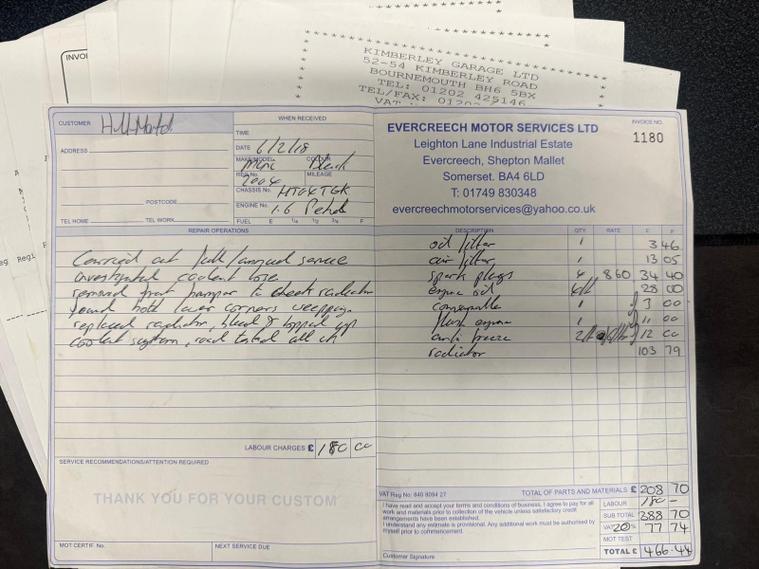 INVOI
KIMBERLEY GARAGE LTD
52-54 KIMBERLEY ROAD
BOURNEMOUTH BH6 5BX
TEL: 01202 425146
TEL/FAX: 01202
VAT
eg Regi
CUSTOMER
ADDRESS
POSTCODE
TEL HOME TEL WORK
WHEN RECEIVED
TIME
DATE 6/2/18
MAKE/MODEL Mini COLOUR Black
REG No. 2004
CHASSIS No. HT04TGK
ENGINE No. 1.6 Petrol
FUEL E 1/4 1/2 3/4 F
EVERCREECH MOTOR SERVICES LTD
Leighton Lane Industrial Estate
Evercreech, Shepton Mallet
Somerset. BA4 6LD
T: 01749 830348
evercreechmotorservices@yahoo.co.uk
INVOICE NO.
1180
REPAIR OPERATIONS
Carried out full/annual service
investigated coolant loss
removed front bumper to check radiator
found both lower corners weeping.
replaced radiator, bleed & topped up
coolant system, road tested all ok
LABOUR CHARGES £ 180 00
SERVICE RECOMMENDATIONS/ATTENTION REQUIRED
THANK YOU FOR YOUR CUSTOM
MOT CERTIF. No. NEXT SERVICE DUE
DESCRIPTION QTY RATE £ P
oil filter 1 3 46
air filter 1 13 05
spark plugs 4 8 60 34 40
engine oil 28 00
consumable 1 3 00
flush engine 1 11 00
anti freeze 12 00
radiator 103 79
VAT Reg No: 640 8094 27
TOTAL OF PARTS AND MATERIALS £ 208 70
I have read and accept your terms and conditions of business. I agree to pay for all
work and materials prior to collection of the vehicle unless satisfactory credit
arrangements have been established.
I understand any estimate is provisional. Any additional work must be authorised by
myself prior to commencement.
Customer Signature
LABOUR 180 -
SUB TOTAL 388 70
VAT 20 % 77 74
MOT TEST
TOTAL £ 466.44